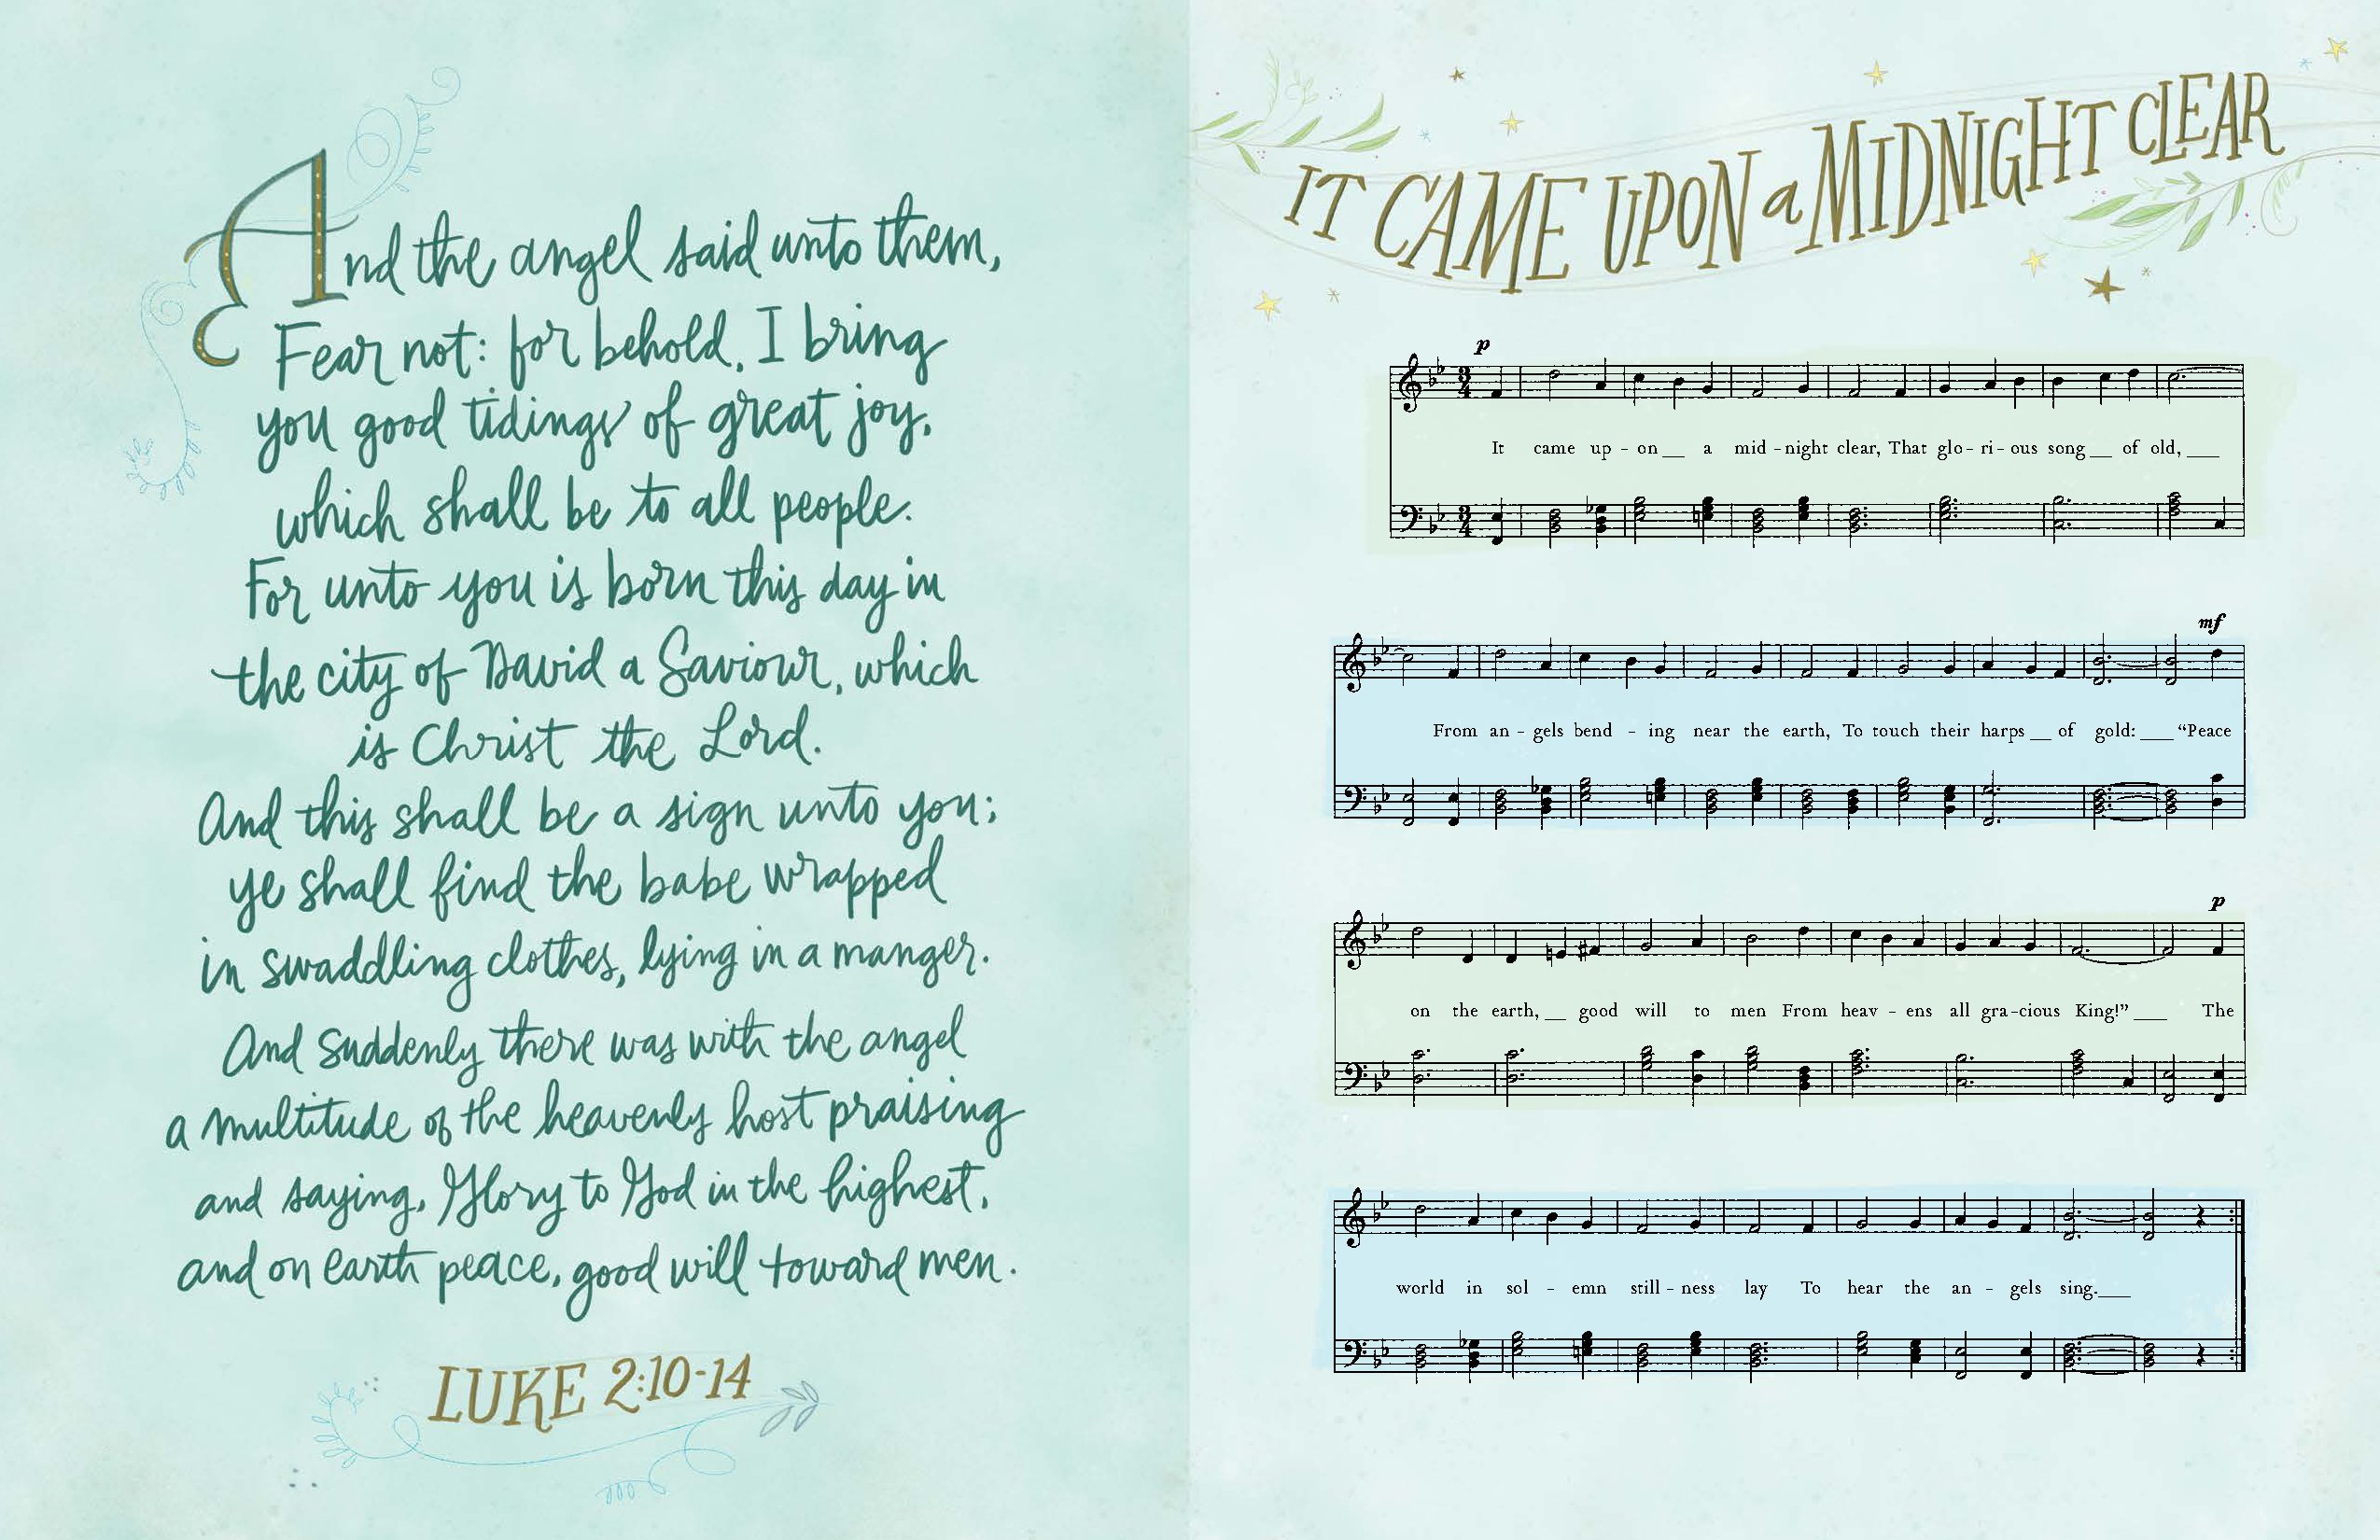 And the angel said unto them,
Fear not: for behold, I bring
you good tidings of great joy,
which shall be to all people.
For unto you is born this day in
the city of David a Saviour, which
is Christ the Lord.
And this shall be a sign unto you;
ye shall find the babe wrapped
in swaddling clothes, lying in a manger.
And suddenly there was with the angel
a multitude of the heavenly host praising
and saying, Glory to God in the highest,
and on earth peace, good will toward men.
LUKE 2:10-14
IT CAME UPON a MIDNIGHT CLEAR
p
3
4
It came up - on__ a mid - night clear, That glo - ri - ous song__ of old,__
3
4
mf
From an - gels bend - ing near the earth, To touch their harps__ of gold:__ “Peace
p
on the earth,__ good will to men From heav - ens all gra - cious King!”__ The
world in sol - emn still - ness lay To hear the an - gels sing.__